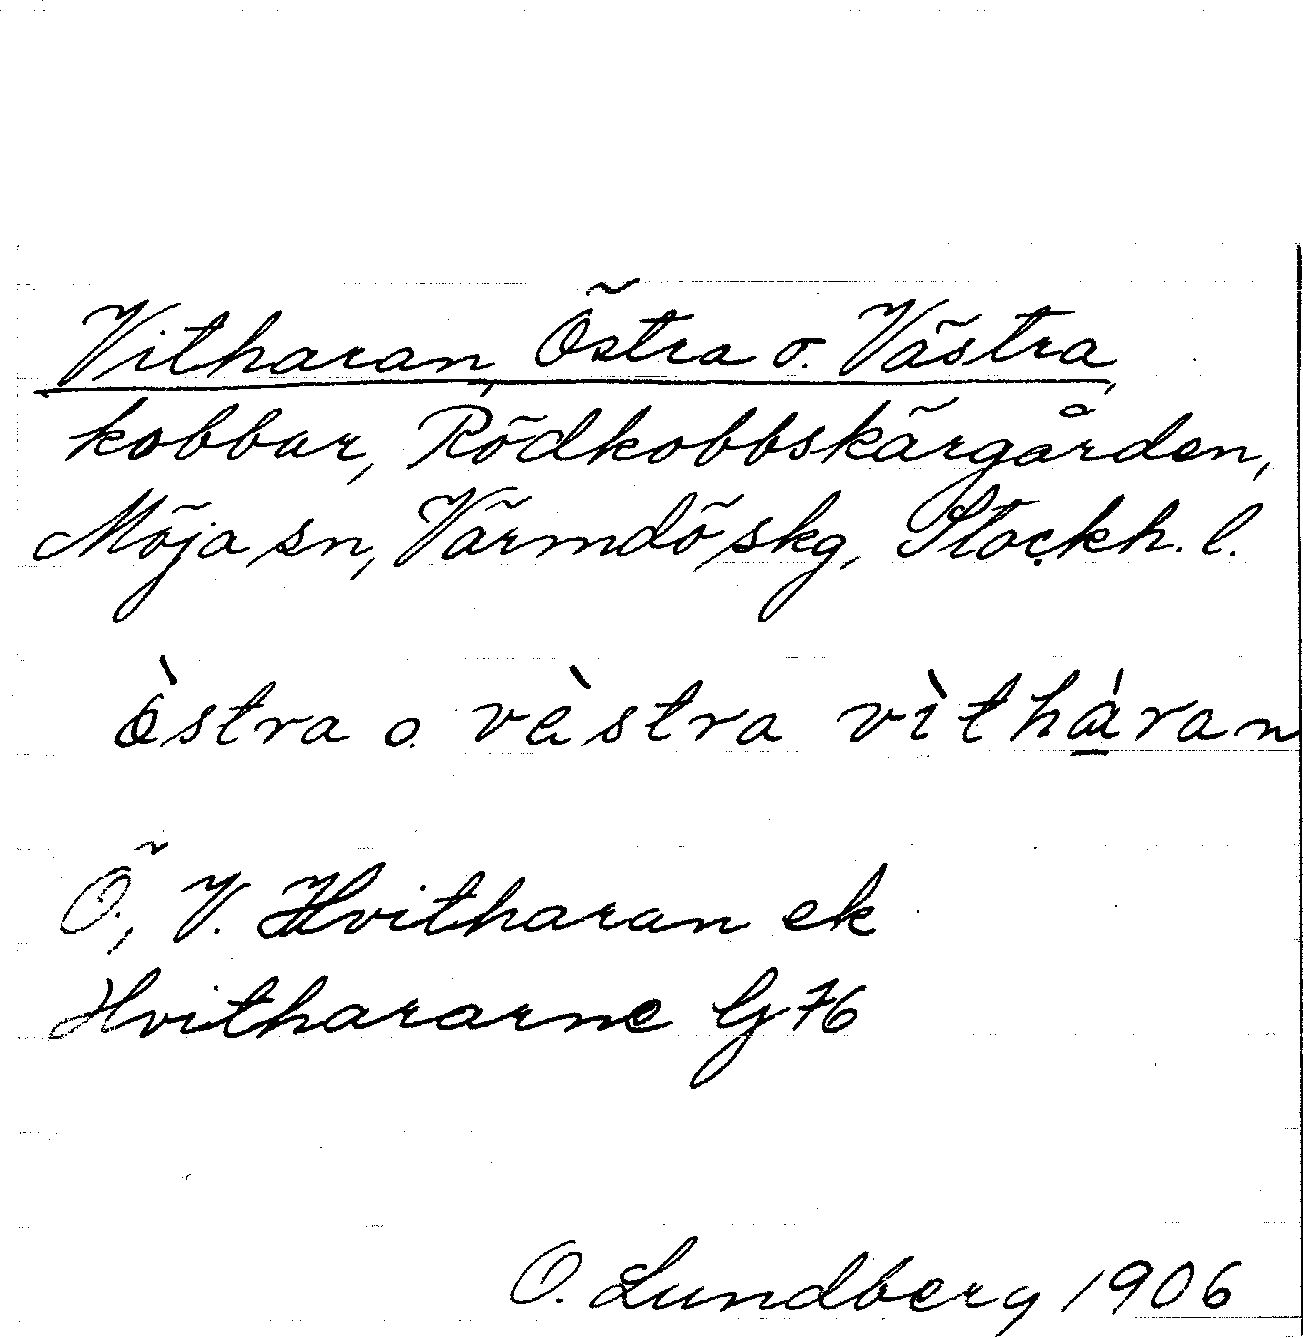 Vitharan, Östra o. Västra,
kobbar, Rödkobbskärgården,
Möja sn, Värmdö skg, Stockh. l.
òstra o. vèstra vìtháran
Ö., V. Hvitharan ek
Hvithararne G 76
O. Lundberg 1906